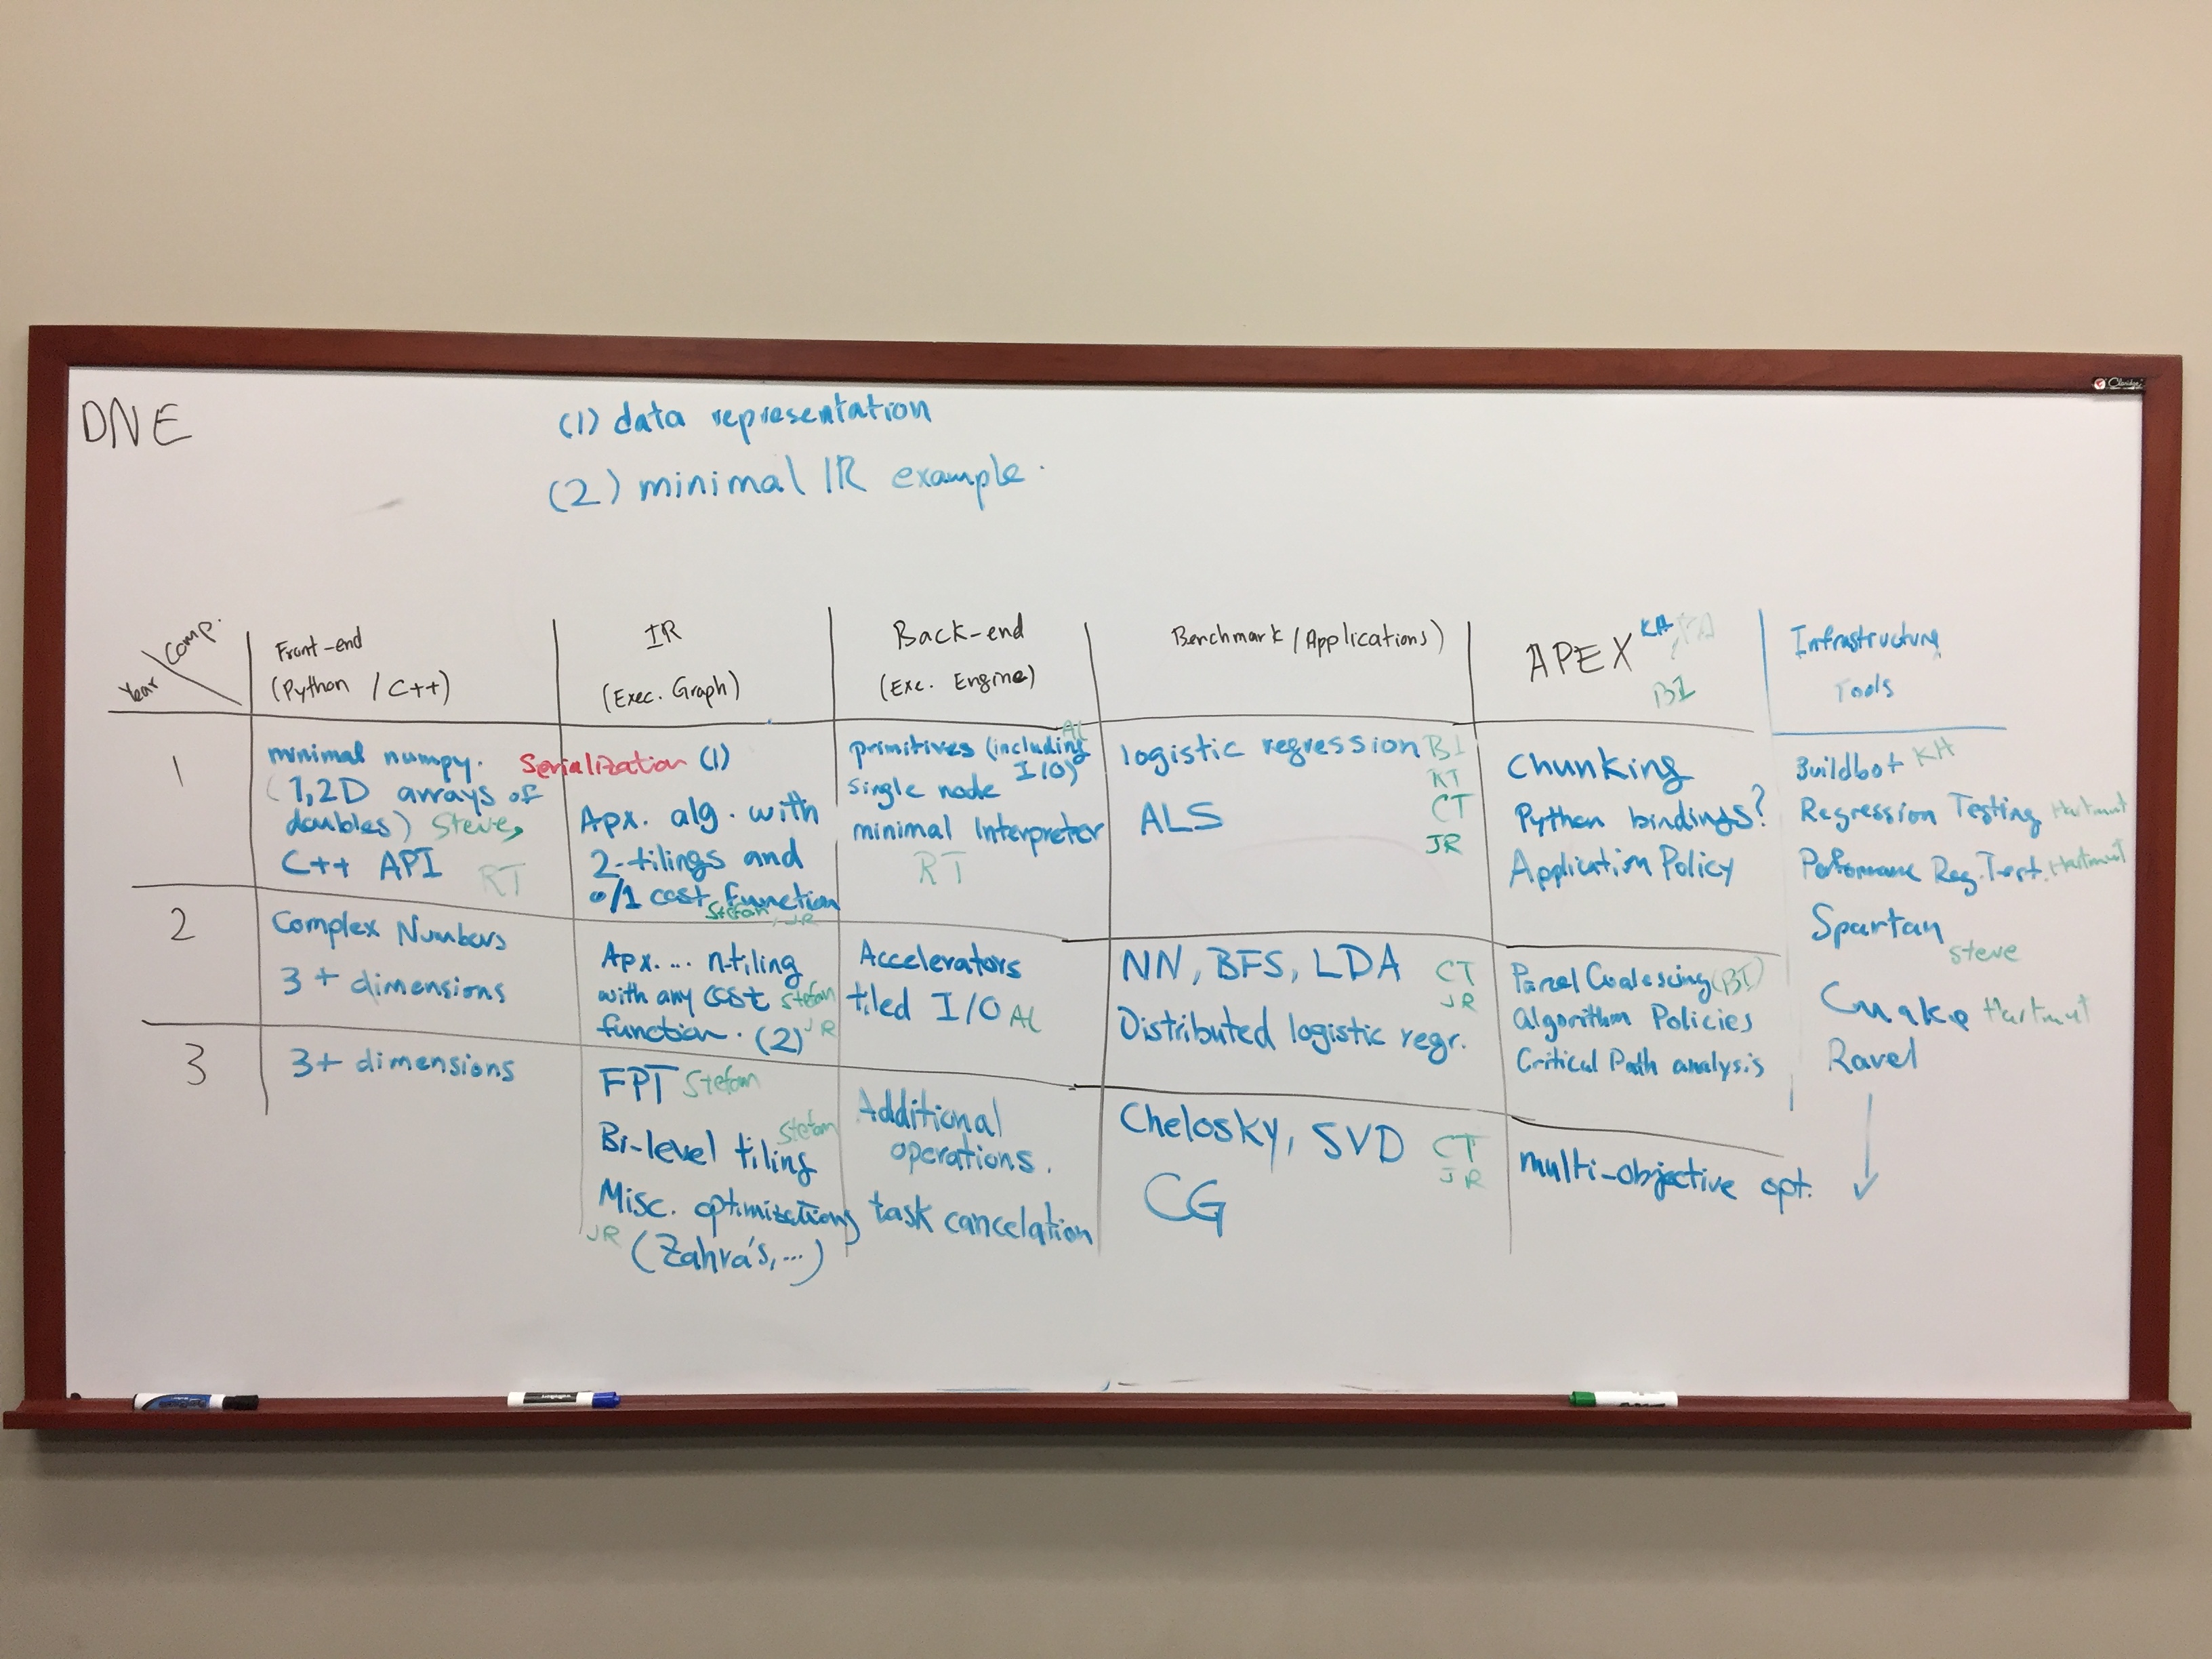 DNE
(1) data representation
(2) minimal IR example.
Year / Comp.
Front-end
(Python / C++)
IR
(Exec. Graph)
Back-end
(Exe. Engine)
Benchmark / Applications)
APEX KH
BI
Infrastructure
Tools
1
minimal numpy.
(1,2D arrays of
doubles) Steve,
C++ API RT
Serialization (1)
Apx. alg. with
2-tilings and
0/1 cost function
Stefan, JR
primitives (including AL
I/O)
single node
minimal Interpreter
RT
logistic regression BI
RT
ALS CT
JR
Chunking
Python bindings?
Application Policy
Buildbot KH
Regression Testing Hartmut
Performance Reg. Test. Hartmut
Spartan
steve
Cmake Hartmut
Ravel
2
Complex Numbers
3+ dimensions
Apx. ... n-tiling
with any cost Stefan
function. (2) JR
Accelerators
tiled I/O AL
NN, BFS, LDA CT
JR
Distributed logistic regr.
Parcel Coalescing (BI)
Algorithm Policies
Critical Path analysis
3
3+ dimensions
FPT Stefan
Stefan
Bi-level tiling
Misc. optimizations
JR (Zahra's, ...)
Additional
operations.
task cancelation
Chelosky, SVD CT
JR
CG
multi-objective opt.